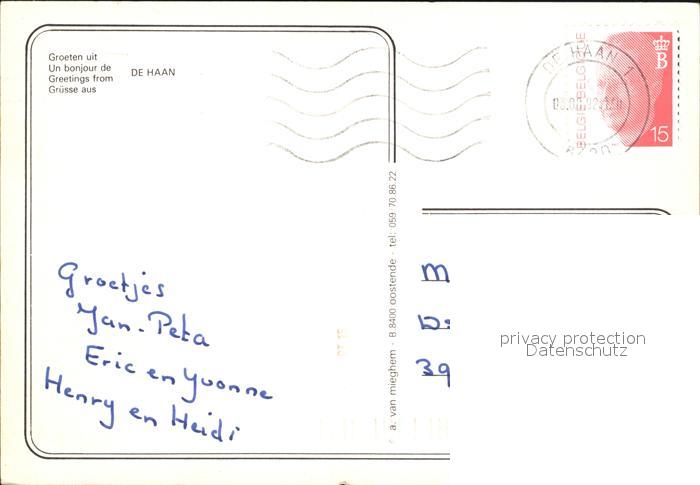 Groeten uit
Un bonjour de
Greetings from
Grüsse aus
DE HAAN
DE HAAN 1
BELGIE-BELGIQUE
B
15
a. van mieghem - B 8400 oostende - tel: 059 70.86.22
Groetjes
Jan-Peta
Eric en Yvonne
Henry en Heidi
M
39
privacy protection
Datenschutz